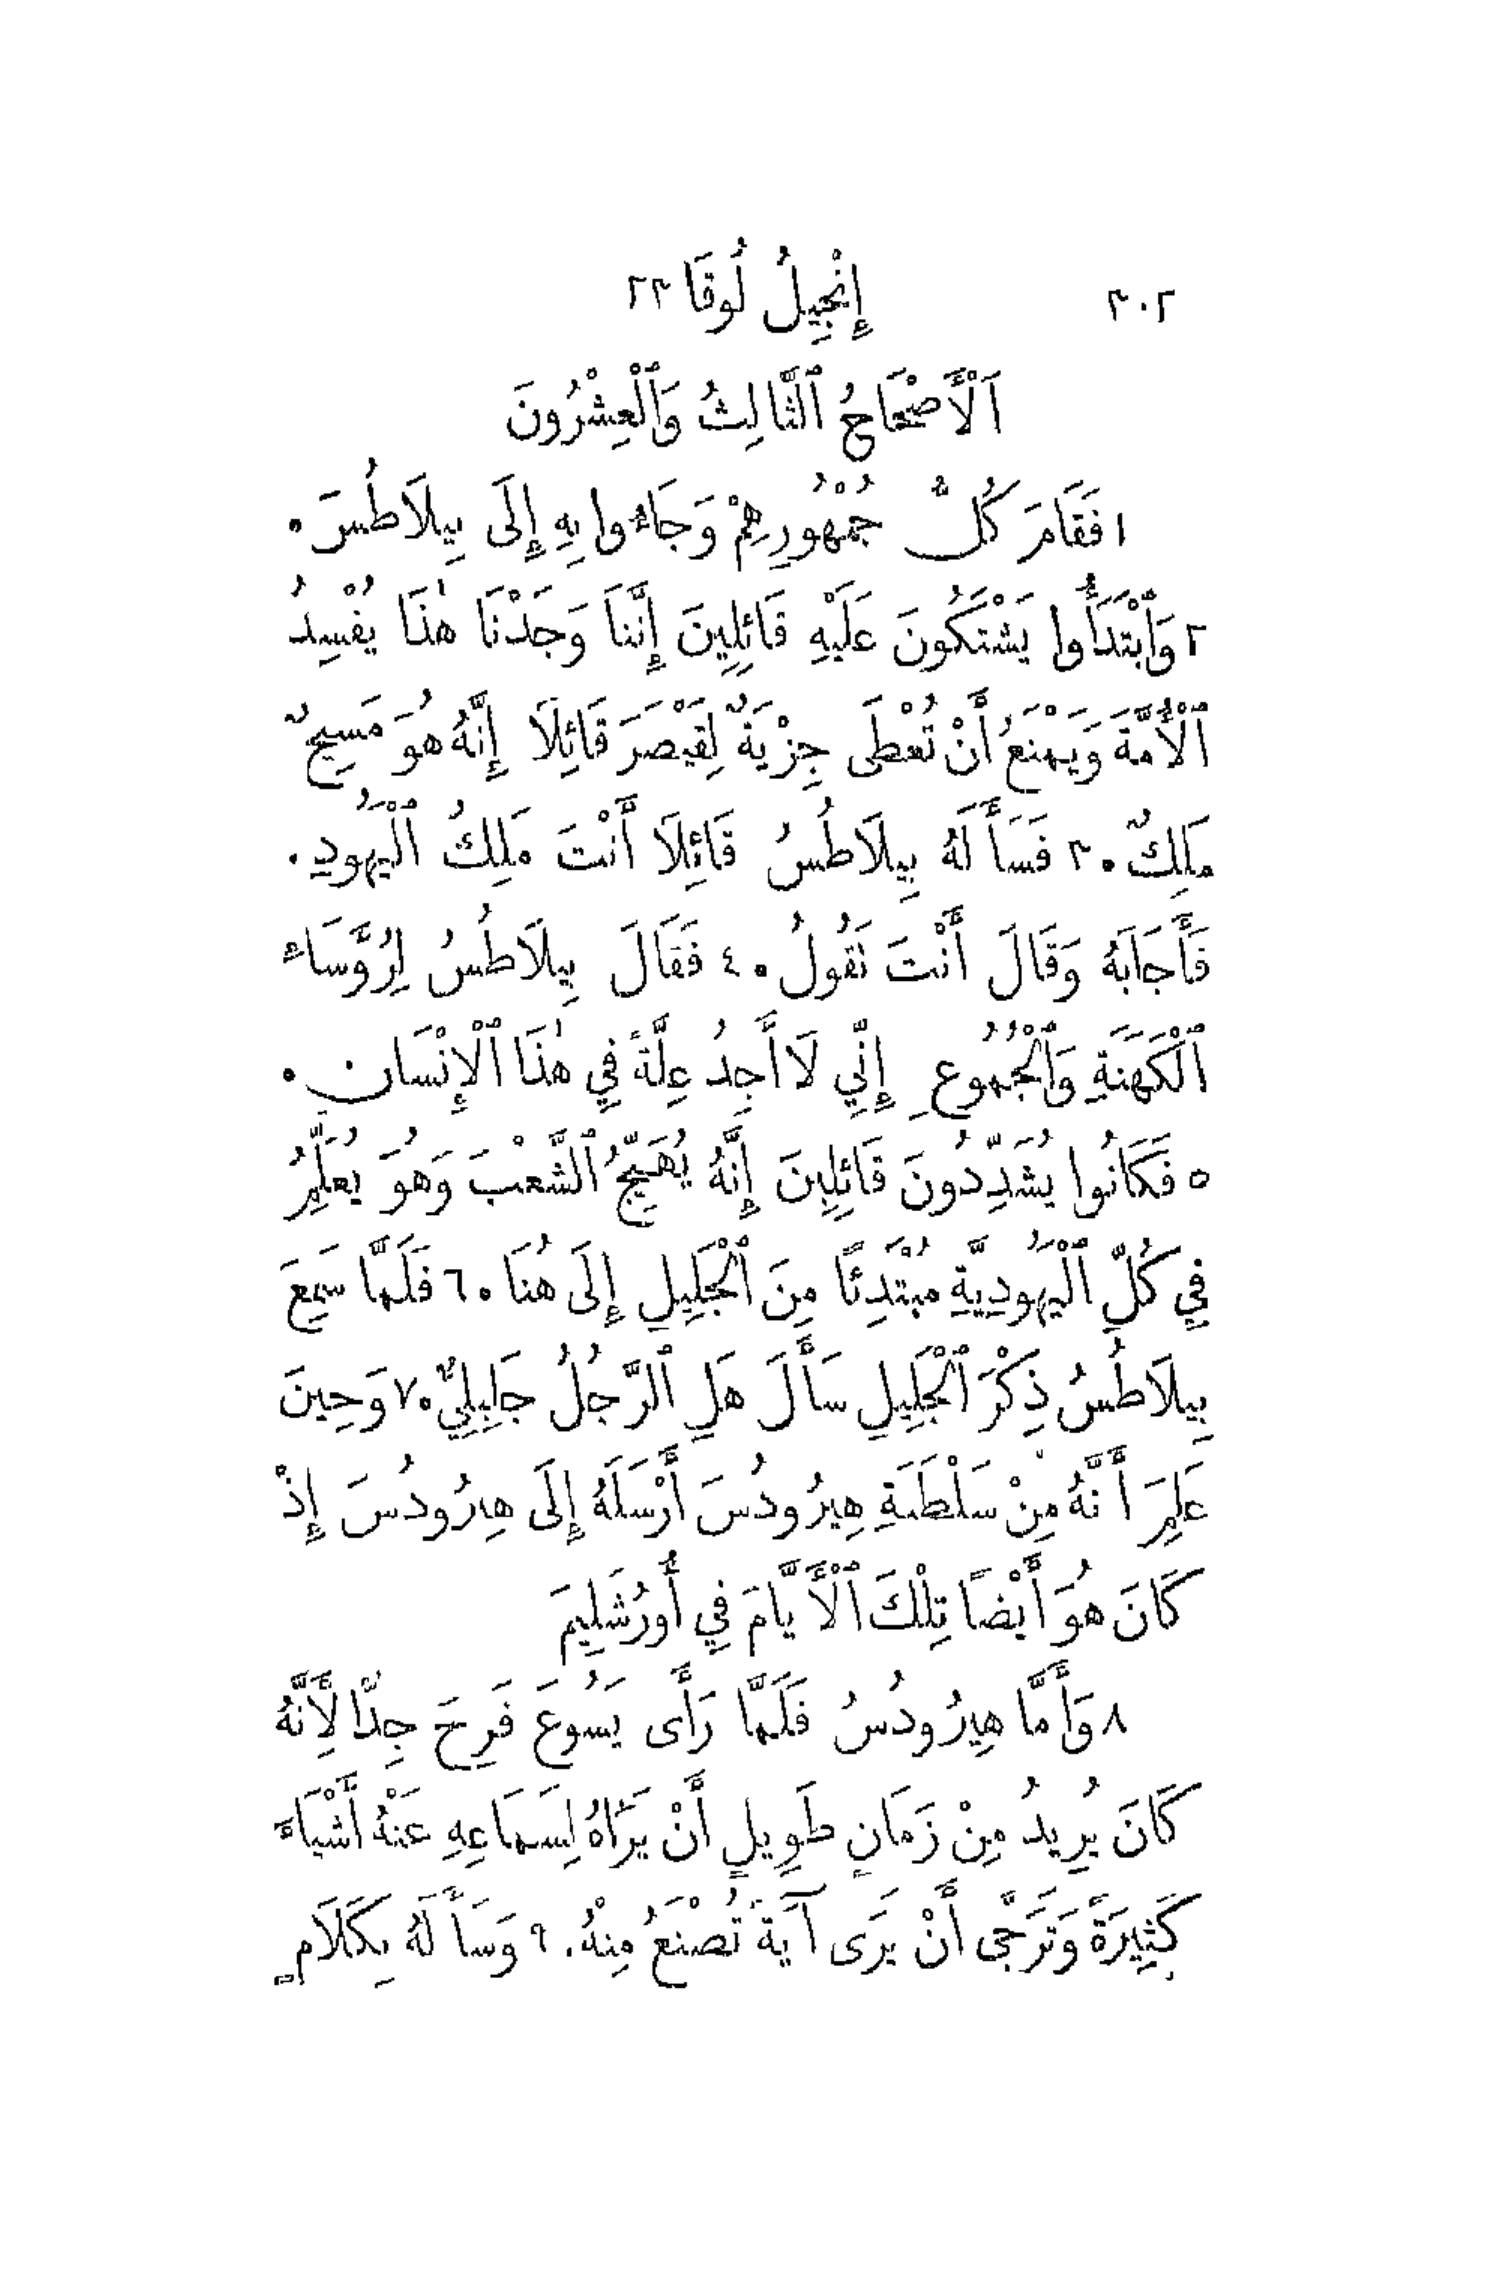 ٣٠٢ إِنْجِيلُ لُوقَا ٢٣
اَلْأَصْحَاحُ ٱلثَّالِثُ وَٱلْعِشْرُونَ
١ فَقَامَ كُلُّ جُمْهُورِهِمْ وَجَاءُوا بِهِ إِلَى بِيلَاطُسَ ٠
٢ وَٱبْتَدَأُوا يَشْتَكُونَ عَلَيْهِ قَائِلِينَ إِنَّنَا وَجَدْنَا هٰذَا يُفْسِدُ
ٱلْأُمَّةَ وَيَمْنَعُ أَنْ تُعْطَى جِزْيَةٌ لِقَيْصَرَ قَائِلًا إِنَّهُ هُوَ مَسِيحٌ
مَلِكٌ ٠ ٣ فَسَأَلَهُ بِيلَاطُسُ قَائِلًا أَنْتَ مَلِكُ ٱلْيَهُودِ ٠
فَأَجَابَهُ وَقَالَ أَنْتَ تَقُولُ ٠ ٤ فَقَالَ بِيلَاطُسُ لِرُؤَسَاءِ
ٱلْكَهَنَةِ وَٱلْجُمُوعِ إِنِّي لَا أَجِدُ عِلَّةً فِي هٰذَا ٱلْإِنْسَانِ ٠
٥ فَكَانُوا يُشَدِّدُونَ قَائِلِينَ إِنَّهُ يُهَيِّجُ ٱلشَّعْبَ وَهُوَ يُعَلِّمُ
فِي كُلِّ ٱلْيَهُودِيَّةِ مُبْتَدِئًا مِنَ ٱلْجَلِيلِ إِلَى هُنَا ٠ ٦ فَلَمَّا سَمِعَ
بِيلَاطُسُ ذِكْرَ ٱلْجَلِيلِ سَأَلَ هَلِ ٱلرَّجُلُ جَلِيلِيٌّ ٠ ٧ وَحِينَ
عَلِمَ أَنَّهُ مِنْ سَلْطَنَةِ هِيرُودُسَ أَرْسَلَهُ إِلَى هِيرُودُسَ إِذْ
كَانَ هُوَ أَيْضًا تِلْكَ ٱلْأَيَّامَ فِي أُورُشَلِيمَ
٨ وَأَمَّا هِيرُودُسُ فَلَمَّا رَأَى يَسُوعَ فَرِحَ جِدًّا لِأَنَّهُ
كَانَ يُرِيدُ مِنْ زَمَانٍ طَوِيلٍ أَنْ يَرَاهُ لِسَمَاعِهِ عَنْهُ أَشْيَاءَ
كَثِيرَةً وَتَرَجَّى أَنْ يَرَى آيَةً تُصْنَعُ مِنْهُ ٠ ٩ وَسَأَلَهُ بِكَلَامٍ